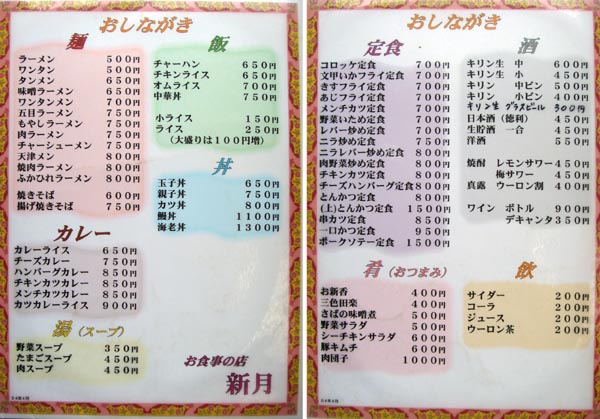 おしながき
麺
ラーメン 500円
ワンタン 500円
タンメン 650円
味噌ラーメン 650円
ワンタンメン 700円
五目ラーメン 750円
もやしラーメン 750円
肉ラーメン 750円
チャーシューメン 750円
天津メン 800円
焼肉ラーメン 800円
ふかひれラーメン 800円
焼きそば 600円
揚げ焼きそば 750円
カレー
カレーライス 650円
チーズカレー 750円
ハンバーグカレー 850円
チキンカツカレー 850円
メンチカツカレー 850円
カツカレーライス 900円
湯（スープ）
野菜スープ 350円
たまごスープ 450円
肉スープ 450円
飯
チャーハン 650円
チキンライス 650円
オムライス 700円
中華丼 700円
小ライス 150円
ライス 250円
（大盛りは100円増）
丼
玉子丼 650円
親子丼 750円
カツ丼 800円
鰻丼 1100円
海老丼 1300円
お食事の店
新月
おしながき
定食
コロッケ定食 700円
文甲いかフライ定食 700円
きすフライ定食 700円
あじフライ定食 700円
メンチカツ定食 700円
野菜いため定食 700円
レバー炒め定食 750円
ニラ炒め定食 750円
ニラレバー炒め定食 800円
肉野菜炒め定食 800円
チキンカツ定食 800円
チーズハンバーグ定食 800円
とんかつ定食 800円
（上）とんかつ定食 1500円
串カツ定食 850円
一口かつ定食 950円
ポークソテー定食 1500円
肴（おつまみ）
お新香 400円
三色田楽 400円
さばの味噌煮 500円
野菜サラダ 500円
シーチキンサラダ 600円
豚キムチ 600円
肉団子 1000円
酒
キリン生 中 600円
キリン生 小 450円
キリン 中ビン 500円
キリン 小ビン 400円
キリン生 グラスビール 300円
日本酒（徳利） 450円
生貯酒 一合 450円
洋酒 550円
焼酎 レモンサワー 450円
梅サワー 450円
真露 ウーロン割 400円
ワイン ボトル 900円
デキャンタ 350円
飲
サイダー 200円
コーラ 200円
ジュース 200円
ウーロン茶 200円